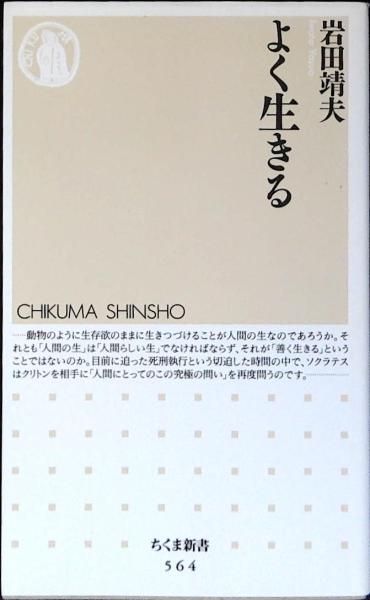 岩田靖夫
Iwata Yasuo
よく生きる
CHIKUMA SHINSHO
……動物のように生存欲のままに生きつづけることが人間の生なのであろうか。そ
れとも「人間の生」は「人間らしい生」でなければならず、それが「善く生きる」という
ことではないのか。目前に迫った死刑執行という切迫した時間の中で、ソクラテス
はクリトンを相手に「人間にとってのこの究極の問い」を再度問うのです。…………
ちくま新書
564